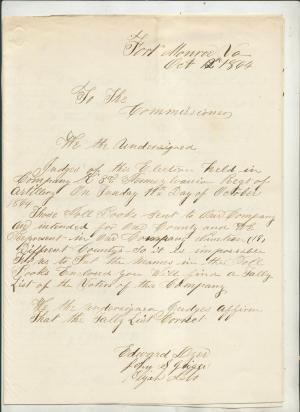 Fort Monroe Va
Oct 12 1864
To The
Commissioner
We the undersigned
Judges of the Election held in
Company K 3d Pennsylvania Regt of
Artillery On Tuesday 11th Day of October
1864
Those Poll Books sent to Our Company
are intended for One County and We
Represent in Our Company
Different Counties So it is impossible
For us to Put the Names in the Poll
Books Enclosed you Will find a Tally
List of the Votes of the Company
We the undersigned Judges Affirm
That the Tally List Correct
Edward
John S